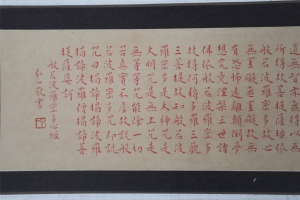 道無智亦無得以無
所得故菩提薩埵依
般若波羅蜜多故心
無罣礙無罣礙故無
有恐怖遠離顛倒夢
想究竟涅槃三世諸
佛依般若波羅蜜多
故得阿耨多羅三藐
三菩提故知般若波
羅蜜多是大神咒是
大明咒是無上咒是
無等等咒能除一切
苦真實不虛故說般
若波羅蜜多咒即說
咒曰揭諦揭諦波羅
揭諦波羅僧揭諦菩
提薩婆訶
般若波羅蜜多心經
弘一敬書